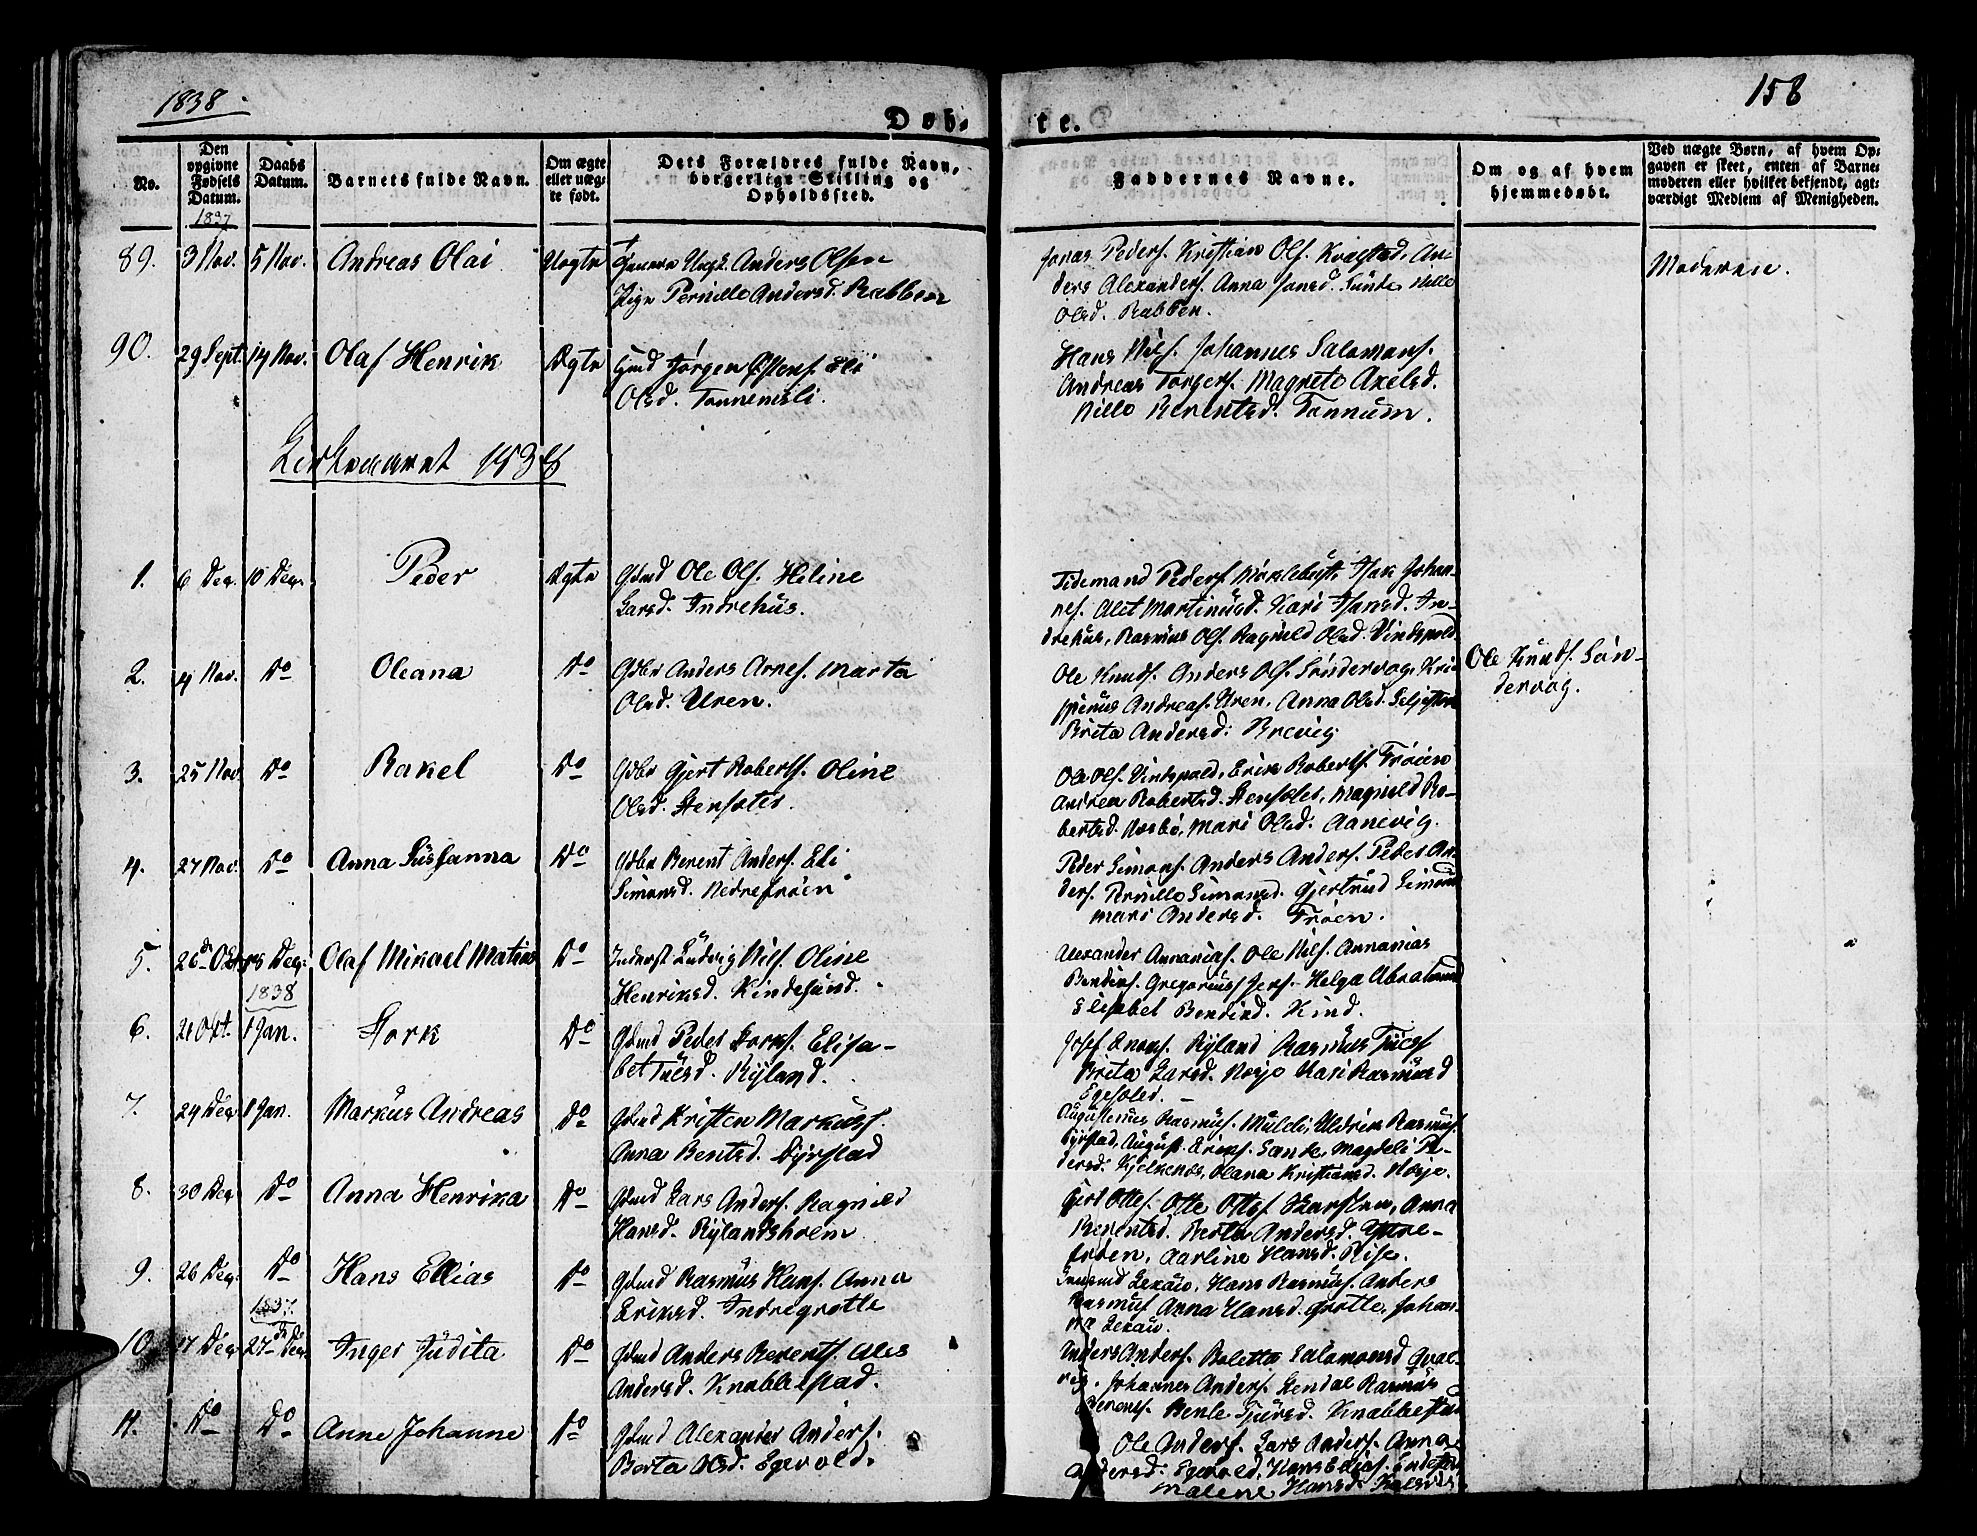 1838
158
Döb-
te.
No.
Den opgivne Fødsels Datum.
Daabs Datum.
Barnets fulde Navn.
Om ægte eller uæg- te født.
Dets Forældres fulde Navn, borgerlige Stilling og Opholdssted.
Faddernes Navne.
Om og af hvem hjemmedøbt.
Ved uægte Børn, af hvem Op- gaven er skeet, enten af Barne- moderen eller hvilket bekjendt, agt- værdigt Medlem af Menigheden.
1837
89. 3 Nov. 5 Nov. Andreas Olai Uægte Ungk. Anders Olsen
Pige Pernille Andersd. Rabben
Jonas Peders. Kristian Ols. Anders Alexanders. Anna Jonsd. Sunde Nille
Olsd. Rabben.
Moderen.
90. 29 Sept. 14 Nov. Olaf Henrik Ægte Gmd Jørgen Eli
Olsd. Tonnemsli.
Hans Nils. Johannes Salamons.
Andreas Torgers. Magrete Axelsd.
Nille Berentsd. Tonnum.
Kirkeaaret 1838
1. 6 Dec. 10 Dec. Peder Ægte Gdmd Ole Ols. Heline
Larsd. Indrehus.
Tidemand Peders. Isak Johan-
nes. Alet Martinusd. Kari Hansd. In-
drehus, Rasmus Ols. Ragnild Olsd. Vindspold
2. 4 Nov. Do Oleana Do Gdbr Anders Arnes. Marta
Olsd. Uren.
Ole Knuds. Anders Ols. Søndervog, Kri-
Andreas. Uren, Anna Olsd.
Brita Andersd. Brevig
Ole Knuds. Søn-
dervog.
3. 25 Nov Do Rakel Do Gdbr Gjert Roberts. Oline
Olsd. Stensøtes.
Ole Ols. Vindspold, Erik Roberts. Frøien
Andrea Robertsd. Magnild Ro-
bertsd. Mari Olsd. Aanevig.
4. 27 Nov. Do Anna Sussanna Do Gdbr Berent Anders. Eli
Simonsd. Nedrefrøen
Peder Simons. Anders Anders. Peder An-
ders. Pernille Simonsd. Gjertrud Simonsd
Mari Andersd. Frøen.
5. 26de Okt. Dec. Olaf Mikael Matias Do Inderst Ludvig Nils. Oline
Henriksd. Kindesund.
Alexander Annanias. Ole Nils. Annanias
Bendiks. Gregorius Jens. Helga Abrahamsd
Elisabet Bendiksd. Kind.
1838
6. 21 Okt. 1 Jan. Stork Do Gdmd Peder Storks. Elisa-
bet Tuesd. Ryland.
Josef Enoks. Ryland Rasmus Tues.
Brita Larsd. Nosje Kari Rasmusd
Egesoled.
7. 24 Dec 1 Jan. Markus Andreas Do Gdmd Kristen Markuss.
Anna Bentsd. Dyrstad
Augustinus Rasmus. Mulde, Uldrik Rasmus.
Dyrstad, August Eriks. Sande, Magdeli Pe-
dersd. Kjelkenes, Olana Kristiansd. Nosje.
8. 30 Dec Do Anna Henrika Do Gdmd Lars Anders. Ragnild
Hansd. Rylandsholm
Gjert Ottes. Otte Ottes. Anna
Berentsd. Berta Andersd. Ytre-
frøen, Aarline Hansd. Rise.
9. 26 Dec Do Hans Ellias Do Gdmd Rasmus Hans. Anna
Eriksd. Indregrotle
Lexau, Hans Rasmus. Anders
Rasmus. Anna Hansd. Grotle, Johan-
na Lexau.
1837.
10. 17 Dec 27de Dec. Inger Judita Do Gdmd Anders Berents. Ales
Andersd. Knabbestad.
Anders Anders. Boletta Salamonsd Qval-
vig. Johannes Anders. Lendal Rasmus
Berents. Benle Tjursd. Knabbestad
11. Do Do Anne Johanne Do Gdmd Alexander Anders.
Berta Olsd. Egevold.
Ole Anders. Lars Anders. Anna
Andersd. Egevold, Hans Elias.
Malene Hansd.